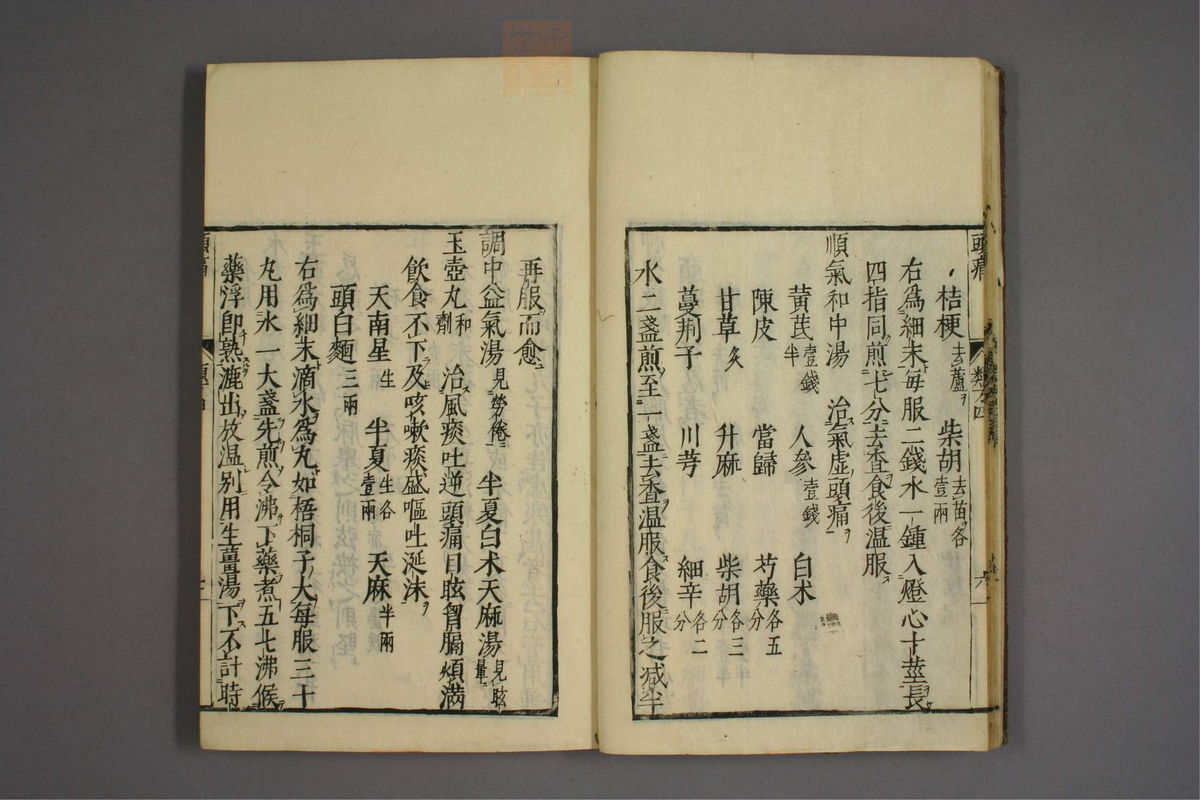 頭痛
類方四
六
桔梗去蘆 柴胡去苗各壹兩
右爲細末每服二錢水一鍾入燈心十莖長
四指同煎七分去査食後温服
順氣和中湯 治氣虛頭痛
黃芪壹錢半 人參壹錢 白术
陳皮 當歸 芍藥各五分
甘草炙 升麻 柴胡各三分
蔓荆子 川芎 細辛各二分
水二盞煎至一盞去査温服食後服之减半
再服而愈
調中益氣湯見勞倦 半夏白术天麻湯見眩暈
玉壺丸和劑 治風痰吐逆頭痛目眩胷膈煩满
飲食不下及咳嗽痰盛嘔吐涎沫
天南星生 半夏生各壹兩 天麻半兩
頭白麵三兩
右爲細末滴水爲丸如梧桐子大每服三十
丸用水一大盞先煎令沸下藥煮五七沸候
藥浮即熟漉出放温别用生薑湯下不計時
頭痛